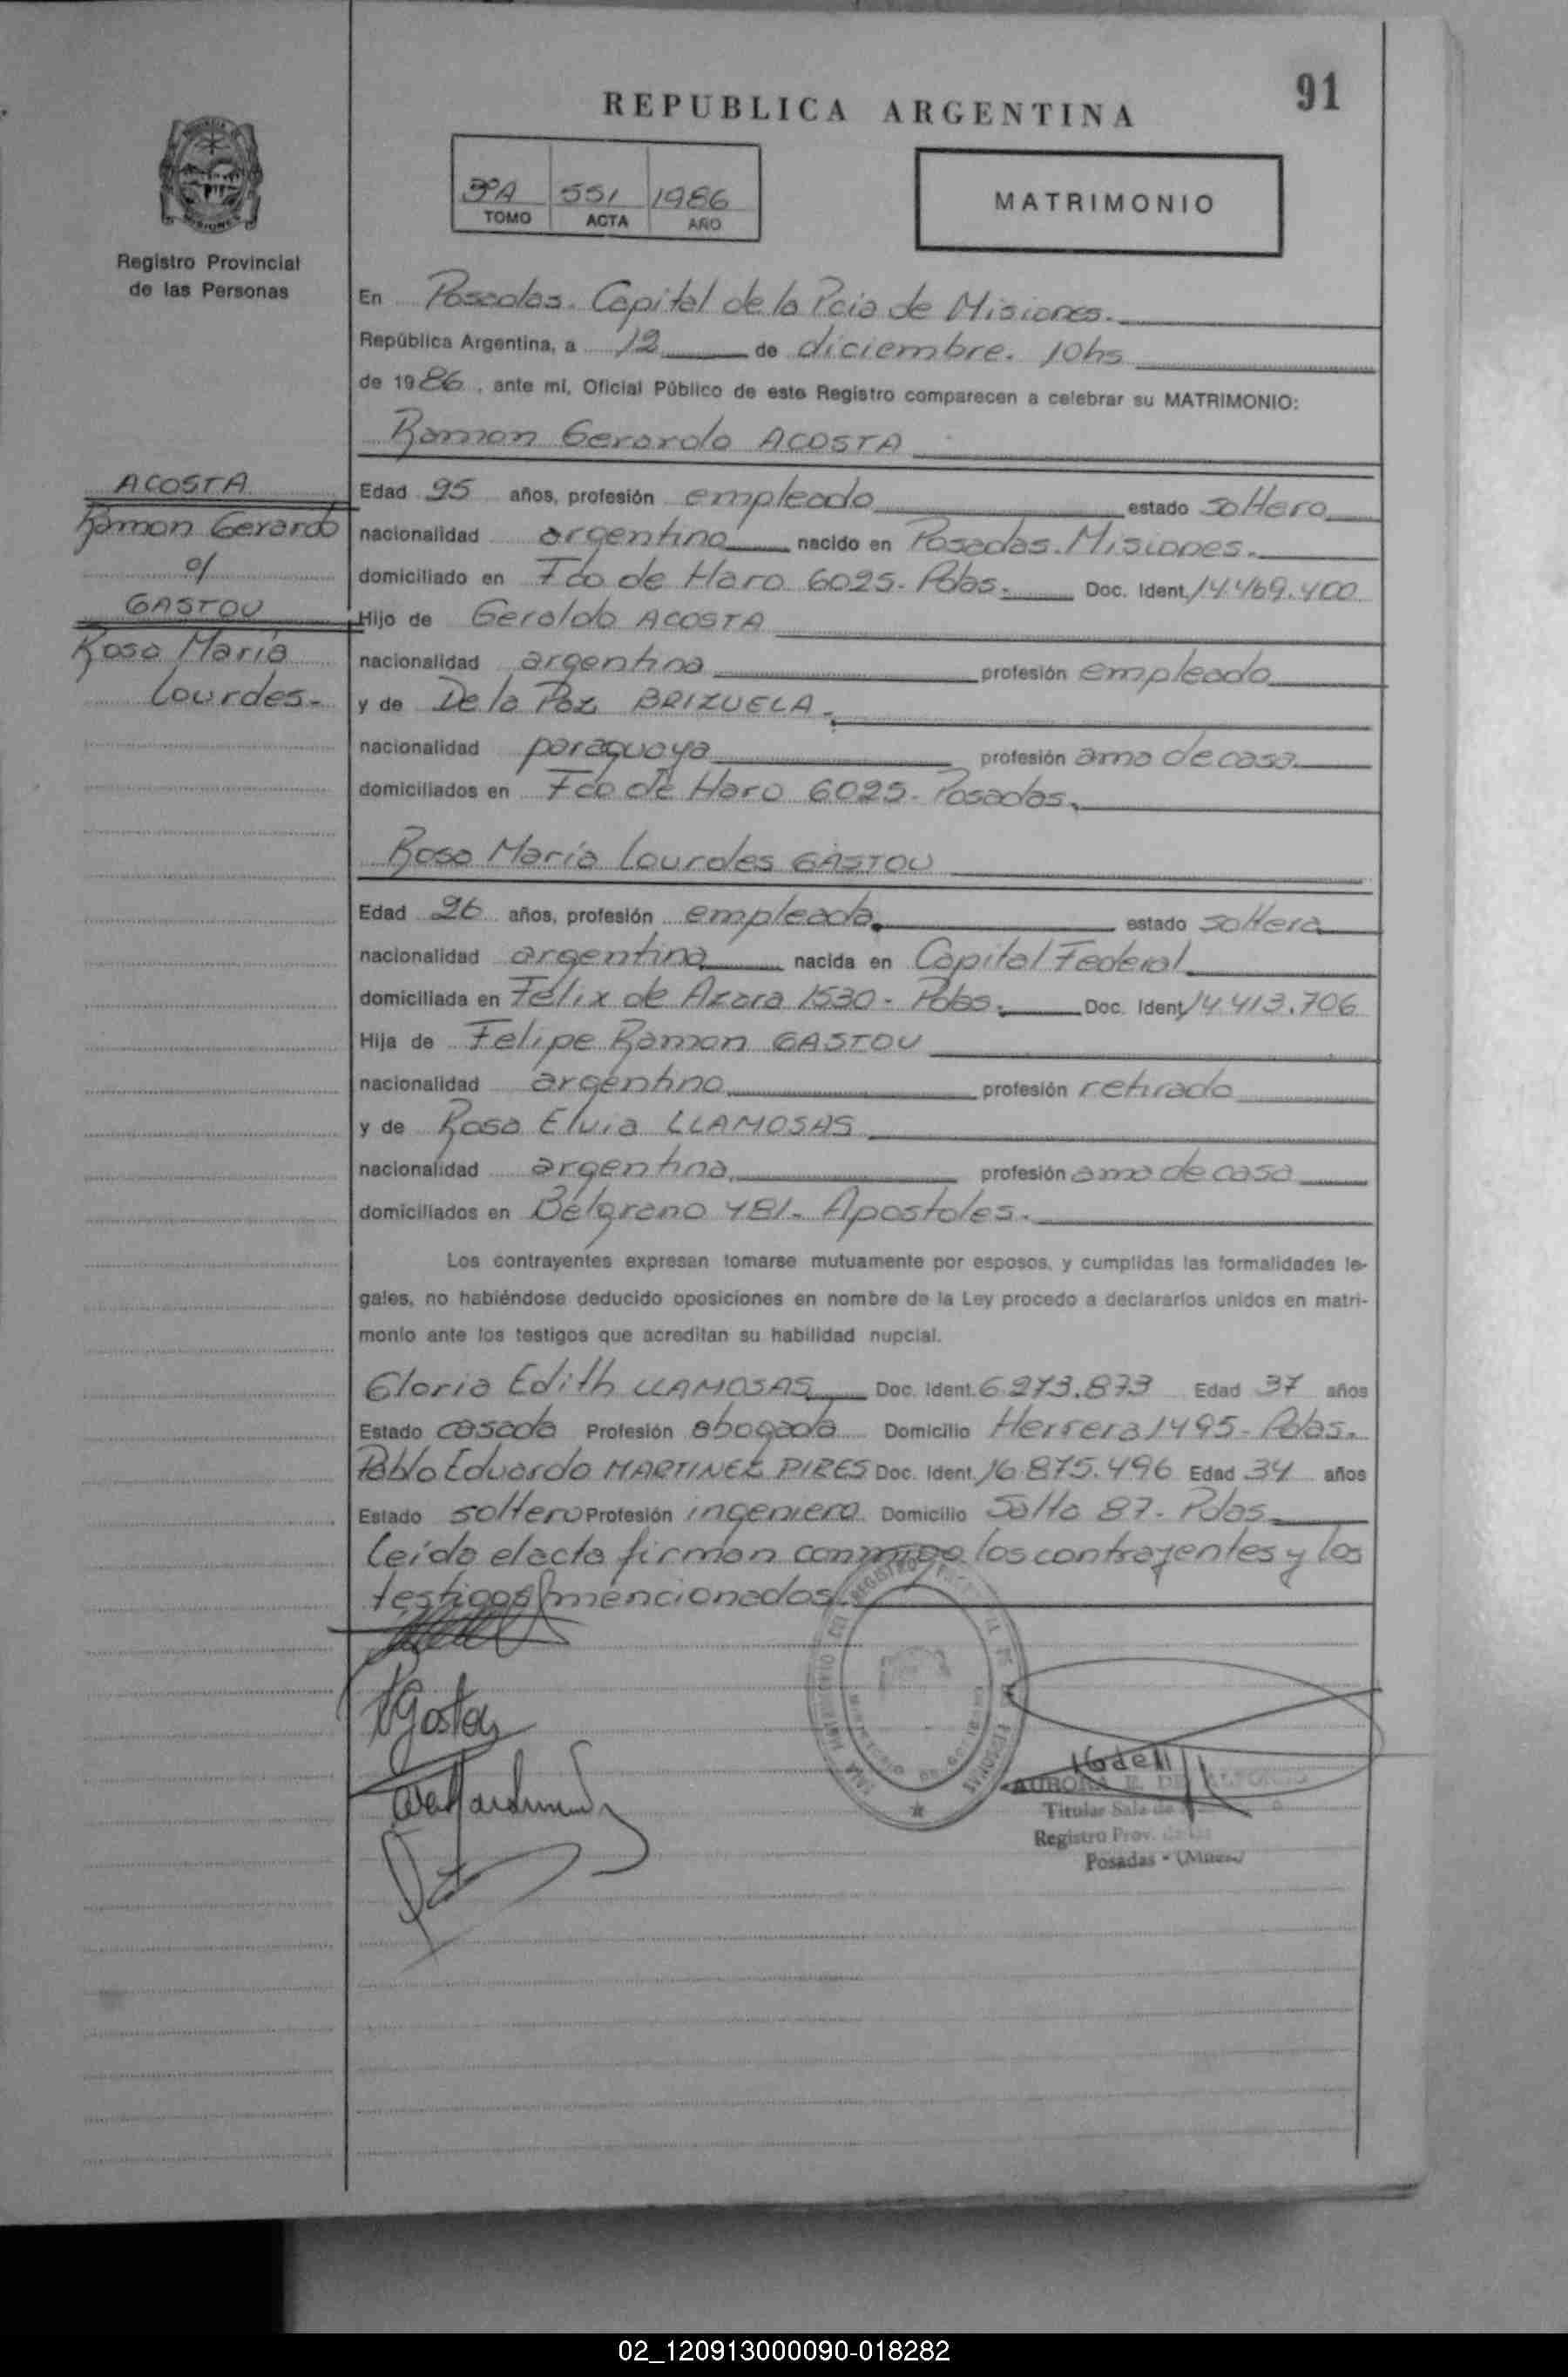 91
REPUBLICA ARGENTINA
3ºA 551 1986
TOMO ACTA AÑO
MATRIMONIO
Registro Provincial
de las Personas
En Posadas. Capital de la Pcia de Misiones.
República Argentina, a 12 de diciembre. 10hs
de 1986, ante mí, Oficial Público de este Registro comparecen a celebrar su MATRIMONIO:
Ramon Gerardo ACOSTA
ACOSTA
Ramon Gerardo
c/
GASTOU
Rosa María
Lourdes.-
Edad 25 años, profesión empleado estado soltero
nacionalidad argentina nacido en Posadas. Misiones.
domiciliado en Fco de Haro 6025. Pdas. Doc. Ident. 14.469.400
Hijo de Geraldo ACOSTA
nacionalidad argentina profesión empleado
y de De la Paz BRIZUELA.
nacionalidad paraguaya profesión ama de casa
domiciliados en Fco de Haro 6025. Posadas.
Rosa María Lourdes GASTOU
Edad 26 años, profesión empleada. estado soltera
nacionalidad argentina nacida en Capital Federal
domiciliada en Félix de Azara 1530- Pdas. Doc. Ident. 14.413.706
Hija de Felipe Ramon GASTOU
nacionalidad argentino profesión retirado
y de Rosa Elvia LLAMOSAS
nacionalidad argentina. profesión ama de casa
domiciliados en Belgrano 481. Apostoles.
Los contrayentes expresan tomarse mutuamente por esposos, y cumplidas las formalidades le-
gales, no habiéndose deducido oposiciones en nombre de la Ley procedo a declararlos unidos en matri-
monio ante los testigos que acreditan su habilidad nupcial.
Gloria Edith LLAMOSAS Doc. Ident. 6.273.873 Edad 37 años
Estado casada Profesión abogada Domicilio Herrera 1495- Pdas.
Pablo Eduardo MARTINEZ PIRES Doc. Ident. 16.875.496 Edad 34 años
Estado soltero Profesión ingeniero Domicilio Salta 87- Pdas
leída el acta firman conmigo los contrayentes y los
testigos mencionados.
AURORA E. DE
Titular Sala de
Registro Prov. de las
Posadas - (Mnes.)
02_120913000090-018282